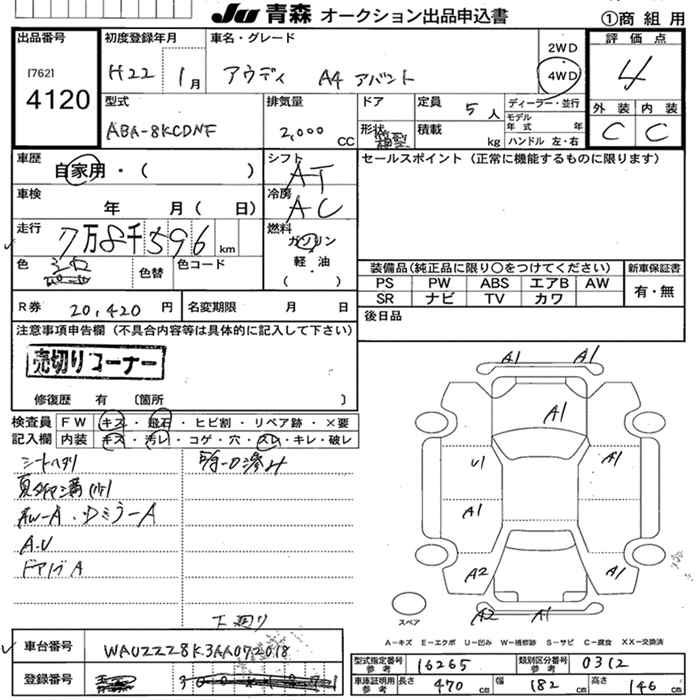 JU 青森 オークション出品申込書
①商 組 用
出品番号
[762]
4120
初度登録年月
H22 1月
車名・グレード
アウディ A4 アバント
2WD
4WD
評価点
4
型式
ABA-8KCDNF
排気量
2,000 CC
ドア
形状
定員 5人
積載 kg
ディーラー・並行
モデル年式 年
ハンドル 左・右
外装 内装
C C
車歴
自家用・( )
シフト
AT
セールスポイント(正常に機能するものに限ります)
車検
年 月( 日)
冷房
AC
走行
7万8千596km
燃料
ガソリン
軽油
( )
色
色替
色コード
装備品(純正品に限り〇をつけてください)
新車保証書
PS PW ABS エアB AW
有・無
SR ナビ TV カワ
R券 20,420円
名変期限 月 日
後日品
注意事項申告欄(不具合内容等は具体的に記入して下さい)
売切りコーナー
修復歴 有 〔箇所 〕
検査員 FW キズ・飛石・ヒビ割・リペア跡・×要
記入欄 内装 キズ・汚レ・コゲ・穴・スレ・キレ・破レ
シートヘタリ
AW-A・ミラーA
A.U
ドアノブA
下廻り
A1 A1
A1
U1 A1
A1
A2 A1
A2 A1
スペア
A−キズ E−エクボ U−凹み W−補修跡 S−サビ C−腐食 XX−交換済
車台番号 WAUZZZ8K3AA072018
登録番号
型式指定番号 参考 16265
類別区分番号 参考 0312
車庫証明用 参考 長さ 470cm 幅 182cm 高さ 146cm